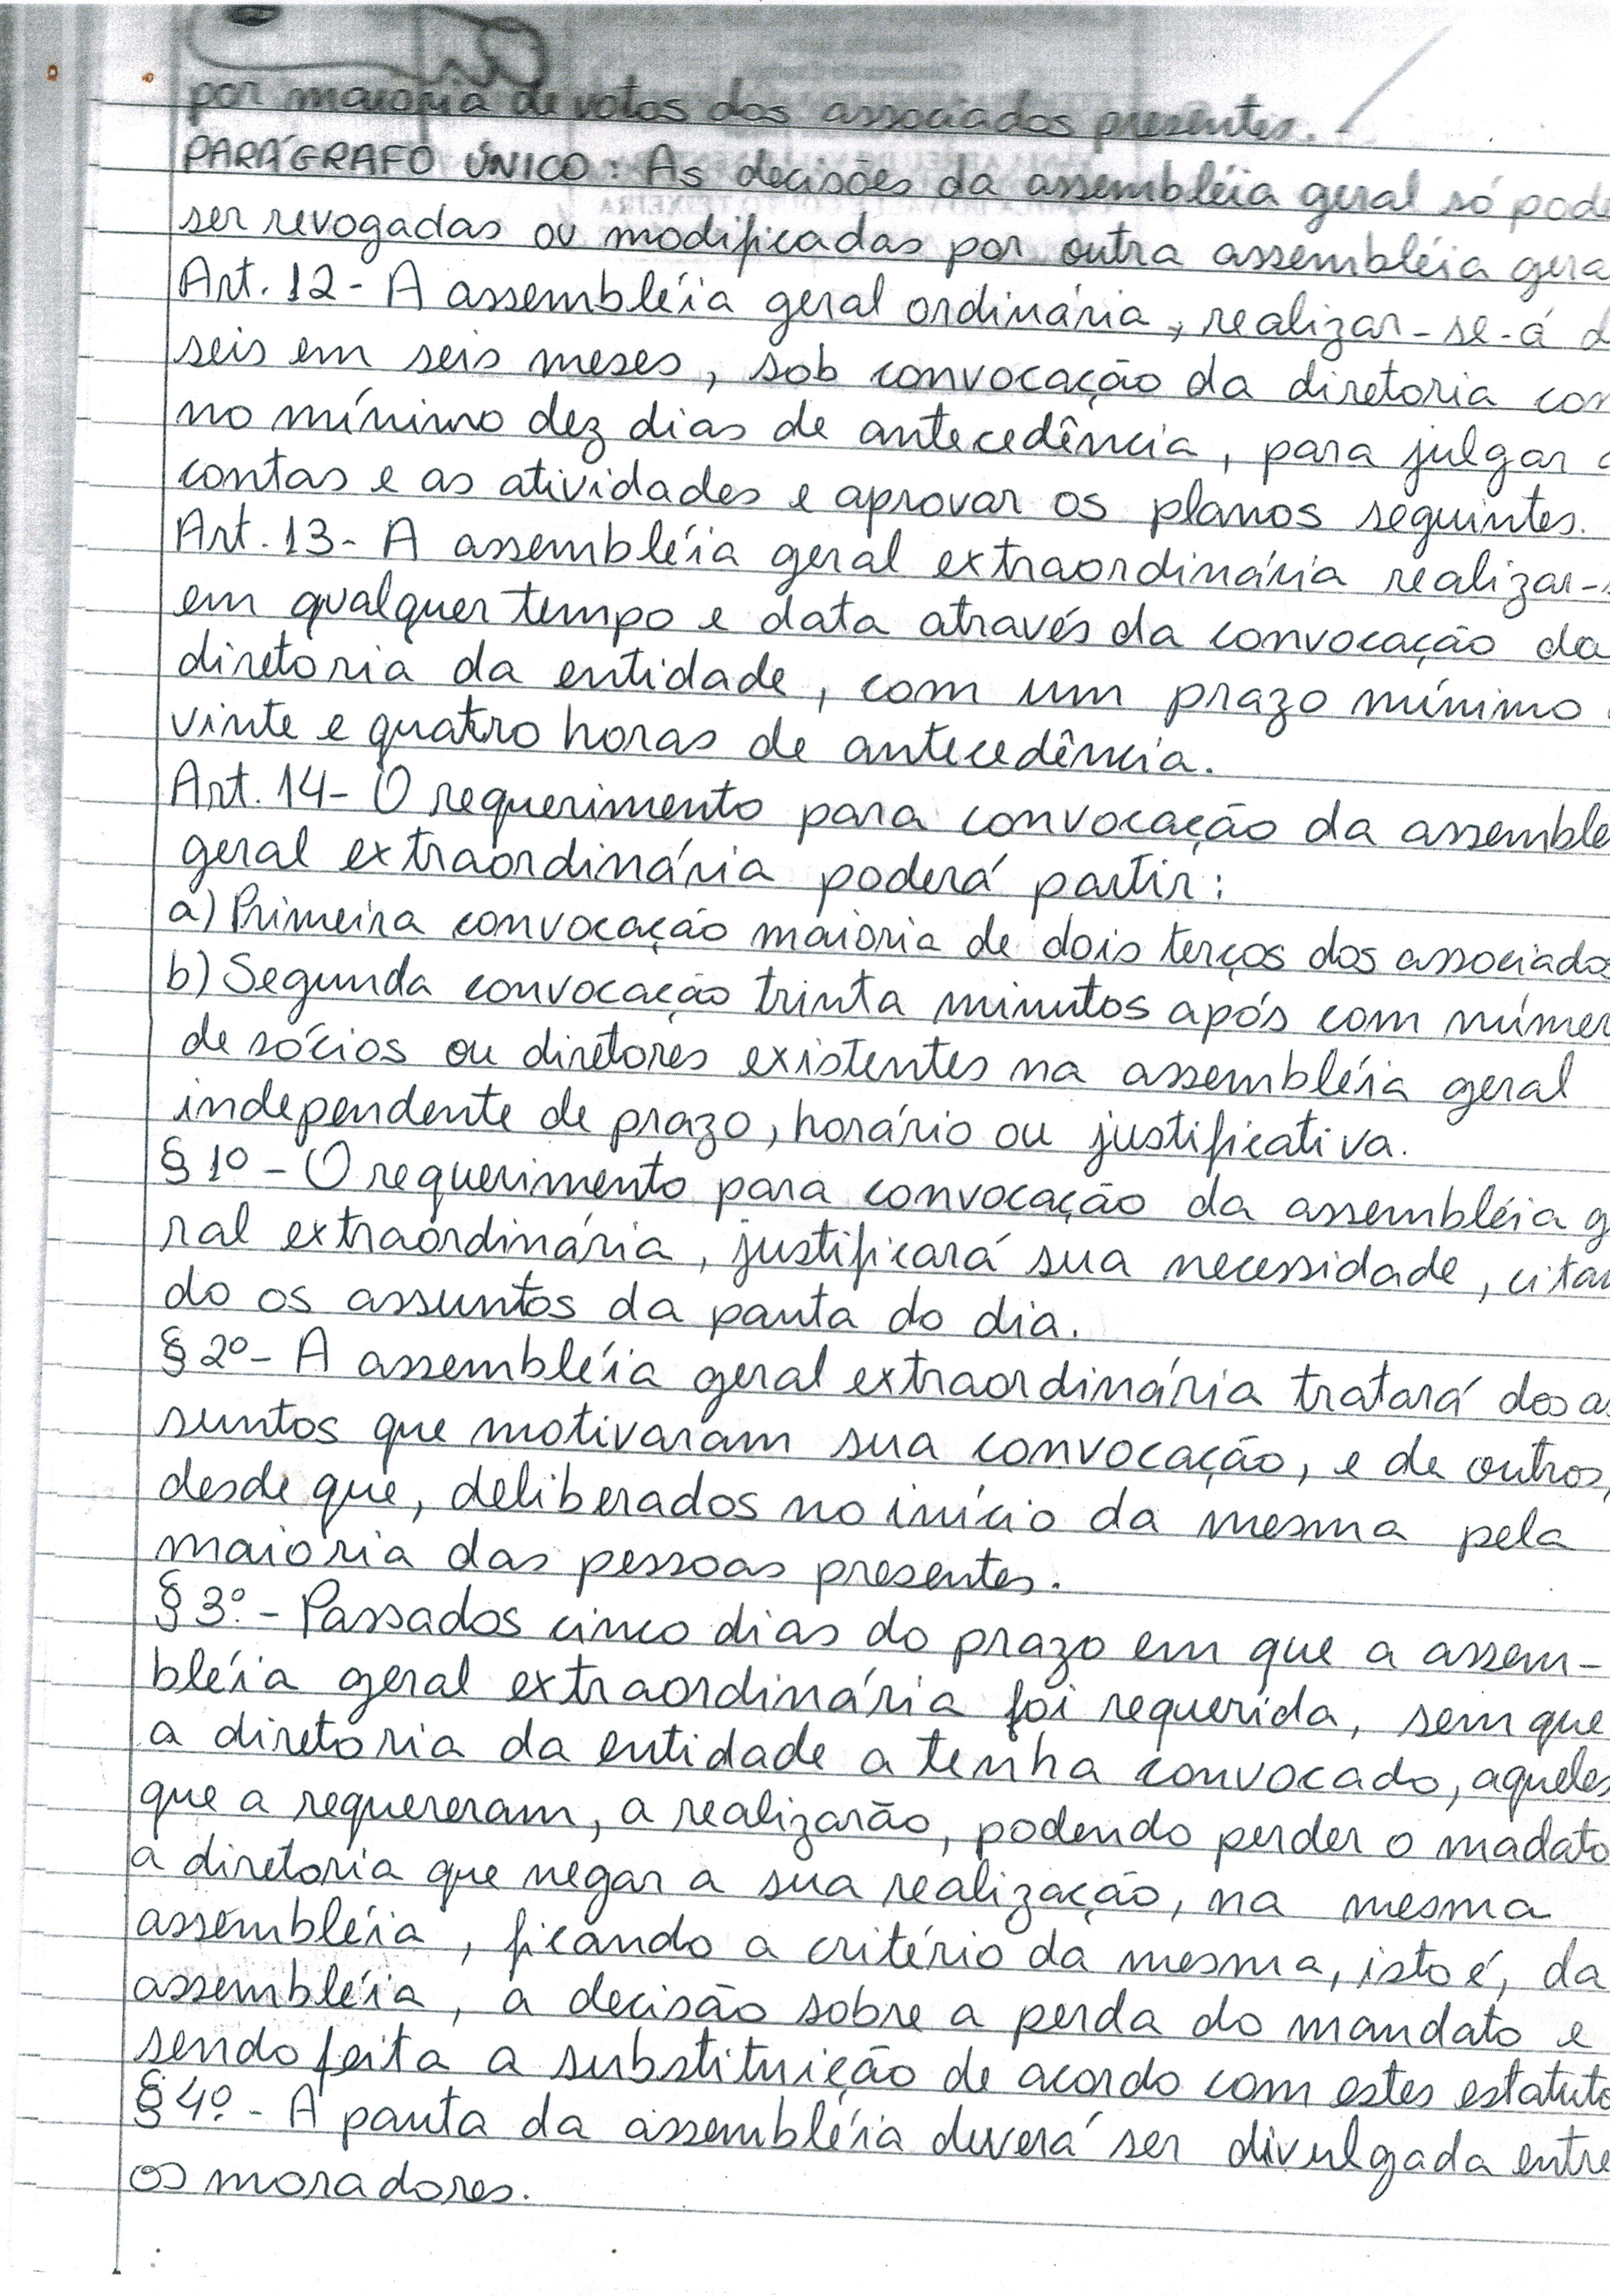 por maioria de votos dos associados presentes.
PARÁGRAFO ÚNICO: As decisões da assembléia geral só pode
ser revogadas ou modificadas por outra assembléia gera
Art. 12- A assembléia geral ordinária, realizar-se-á d
seis em seis meses, sob convocação da diretoria com
no mínimo dez dias de antecedência, para julgar a
contas e as atividades e aprovar os planos seguintes.
Art. 13- A assembléia geral extraordinária realizar-s
em qualquer tempo e data através da convocação da
diretoria da entidade, com um prazo mínimo
vinte e quatro horas de antecedência.
Art. 14- O requerimento para convocação da assemble
geral extraordinária poderá partir:
a) Primeira convocação maioria de dois terços dos associados
b) Segunda convocação trinta minutos após com númer
de sócios ou diretores existentes na assembléia geral
independente de prazo, horário ou justificativa.
§ 1º - O requerimento para convocação da assembléia g
ral extraordinária, justificará sua necessidade, citan
do os assuntos da pauta do dia.
§ 2º - A assembléia geral extraordinária tratará dos as
suntos que motivaram sua convocação, e de outros,
desde que, deliberados no início da mesma pela
maioria das pessoas presentes.
§ 3º - Passados cinco dias do prazo em que a assem-
bléia geral extraordinária foi requerida, sem que
a diretoria da entidade a tenha convocado, aqueles
que a requereram, a realizarão, podendo perder o madato
a diretoria que negar a sua realização, na mesma
assembléia, ficando a critério da mesma, isto é, da
assembléia, a decisão sobre a perda do mandato e
sendo feita a substituição de acordo com estes estatuto
§ 4º - A pauta da assembléia deverá ser divulgada entre
os moradores.